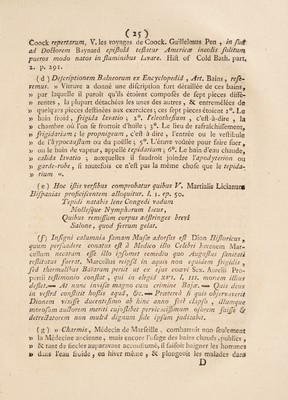 ( 25 )
Coock repertarum, V. les voyages de Coock. Guillelmus Pen, in suâ
ad Doctorem Baynard epistolâ testatur Americæ incolis solitum
pueros modo natos in fluminibus lavare. Hist of Cold Bath. part.
2. p. 291.
( d ) Descriptionem Balneorum ex Encyclopediâ, Art. Bains, refe-
remus. » Vitruve a donné une discription fort détaillée de ces bains,
» par laquelle il paroit qu'ils étoient composés de sept pieces diffé-
» rentes, la plupart détachées les unes des autres, & entremêlées de
» quelques pieces destinées aux exercices; ces sept pieces étoient 1.° Le
» bain froid, frigida Lavatio; 2.° l'eleothesium, c'est-à-dire, la
» chambre où l'on se frottoit d'huile; 3.° Le lieu de rafraîchissement,
» frigidarium; le propnigeum, c'est à dire, l'entrée ou le vestibule
» de l'hypocaustum ou du poêle; 5.° L'étuve voûtée pour faire suer,
» ou le bain de vapeur, appellé tepidarium; 6.° Le bain d'eau chaude,
» calida lavatio; auxquelles il faudroit joindre l'apodyterion ou
» garde-robe, si toutefois ce n'est pas la même chose que le tepida-
» rium ».
( e ) Hoc istis versibus comprobatur quibus V. Martialis Licianum
Hispanias proficiscentem alloquitur. l. 1. ep. 50.
Tepidi natabis lene Congedi vadum
Mollesque Nympharum lacus,
Quibus remissum corpus astringes brevi
Salone, quod ferrum gelat.
( f ) Insigni calumnia famam Musæ adorsus est Dion Historicus,
quum persuadere conatus est à Medico isto Celebri
Marcellum necatum esse illo ipsumet remedio quo Augustus sanitati
restitutus fuerit. Marcellus reipsâ in aquis non equidem frigidis,
sed thermalibus Baiarum periit ut ex ejus coævi Sex. Aurelii Pro-
pertii testimonio constat, qui in elegiâ XVI. l. III. mortem illius
deflet. — At nunc invisæ magno cum crimine Bajæ. — Quis deus
in vestrâ constitit hostis aquâ, &c. — Prætereà si quis observaverit
Dionem vixisse ducentissimo ab hinc anno seré elapso, illumque
summorum auctorum meriti cujuslibet pervicacissimum osorem fuisse &
detrectatorem non multâ dignum fide ipsum judicabit.
( g ) » Charmis, Médecin de Marseille, combattoit non seulement
» la Médecine ancienne, mais encore l'usage des bains chauds, publics,
» & tant de siecles auparavant accoutumé, il faisoit baigner les hommes
» dans l'eau froide, en hiver même, & plongeoit les malades dans
D